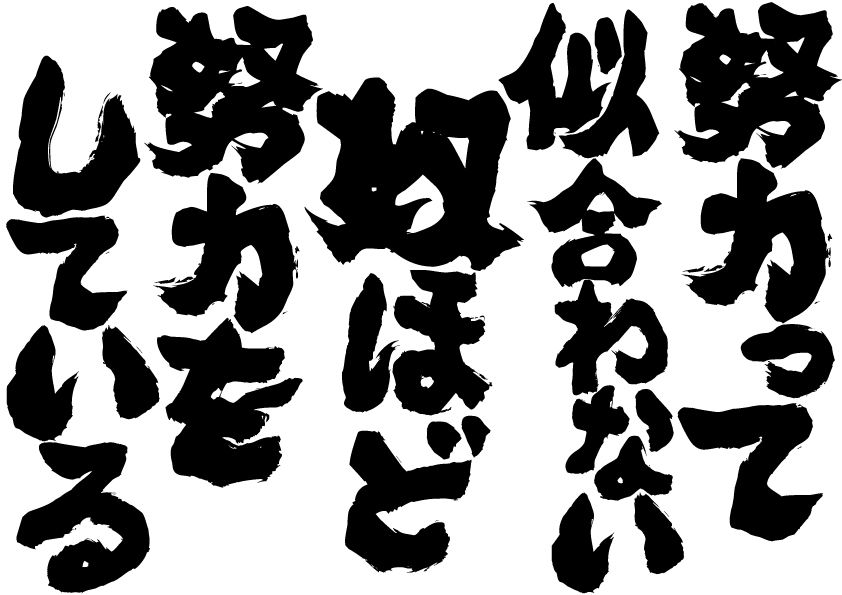 努力って
似合わない
奴ほど
努力を
している